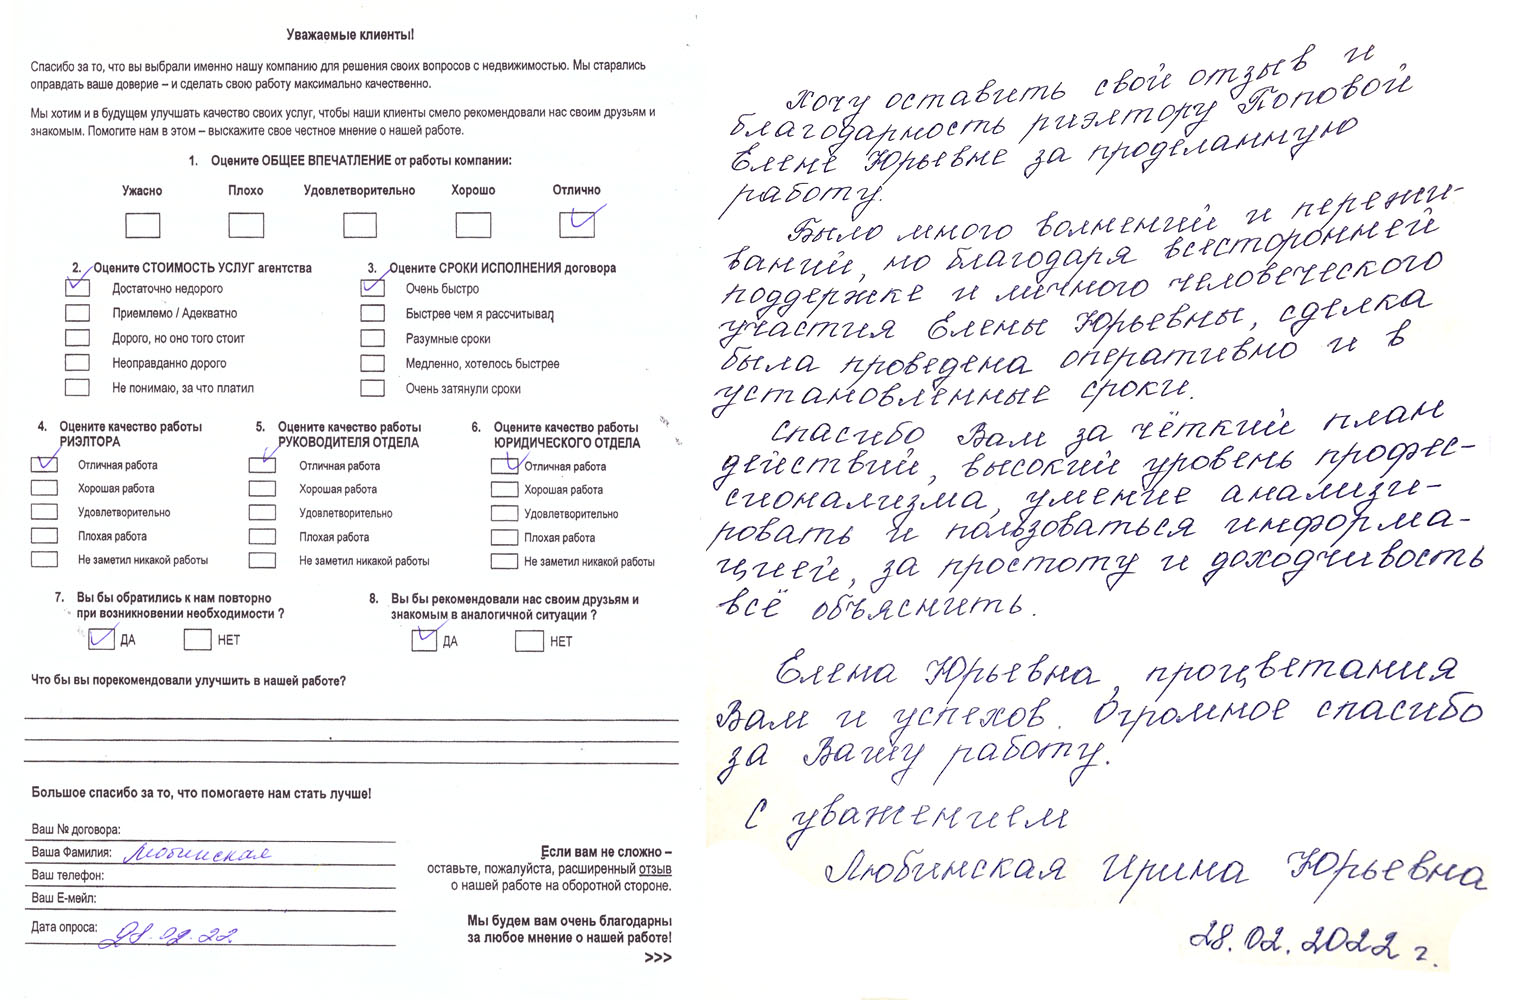 Уважаемые клиенты!
Спасибо за то, что вы выбрали именно нашу компанию для решения своих вопросов с недвижимостью. Мы старались
оправдать ваше доверие – и сделать свою работу максимально качественно.
Мы хотим и в будущем улучшать качество своих услуг, чтобы наши клиенты смело рекомендовали нас своим друзьям и
знакомым. Помогите нам в этом – выскажите свое честное мнение о нашей работе.
1. Оцените ОБЩЕЕ ВПЕЧАТЛЕНИЕ от работы компании:
Ужасно Плохо Удовлетворительно Хорошо Отлично
2. Оцените СТОИМОСТЬ УСЛУГ агентства
Достаточно недорого
Приемлемо / Адекватно
Дорого, но оно того стоит
Неоправданно дорого
Не понимаю, за что платил
3. Оцените СРОКИ ИСПОЛНЕНИЯ договора
Очень быстро
Быстрее чем я рассчитывал
Разумные сроки
Медленно, хотелось быстрее
Очень затянули сроки
4. Оцените качество работы
РИЭЛТОРА
Отличная работа
Хорошая работа
Удовлетворительно
Плохая работа
Не заметил никакой работы
5. Оцените качество работы
РУКОВОДИТЕЛЯ ОТДЕЛА
Отличная работа
Хорошая работа
Удовлетворительно
Плохая работа
Не заметил никакой работы
6. Оцените качество работы
ЮРИДИЧЕСКОГО ОТДЕЛА
Отличная работа
Хорошая работа
Удовлетворительно
Плохая работа
Не заметил никакой работы
7. Вы бы обратились к нам повторно
при возникновении необходимости ?
ДА НЕТ
8. Вы бы рекомендовали нас своим друзьям и
знакомым в аналогичной ситуации ?
ДА НЕТ
Что бы вы порекомендовали улучшить в нашей работе?
Большое спасибо за то, что помогаете нам стать лучше!
Ваш № договора:
Ваша Фамилия: Любинская
Ваш телефон:
Ваш Е-мейл:
Дата опроса: 28.02.22.
Если вам не сложно –
оставьте, пожалуйста, расширенный отзыв
о нашей работе на оборотной стороне.
Мы будем вам очень благодарны
за любое мнение о нашей работе!
>>>
Хочу оставить свой отзыв и
благодарность риэлтору Поповой
Елене Юрьевне за проделанную
работу.
Было много волнений и пережи-
ваний, но благодаря всесторонней
поддержке и личного человеческого
участия Елены Юрьевны, сделка
была проведена оперативно и в
установленные сроки.
Спасибо Вам за чёткий план
действий, высокий уровень профес-
сионализма, умение анализи-
ровать и пользоваться информа-
цией, за простоту и доходчивость
всё объяснить.
Елена Юрьевна, процветания
Вам и успехов. Огромное спасибо
за Вашу работу.
С уважением
Любинская Ирина Юрьевна
28.02.2022 г.